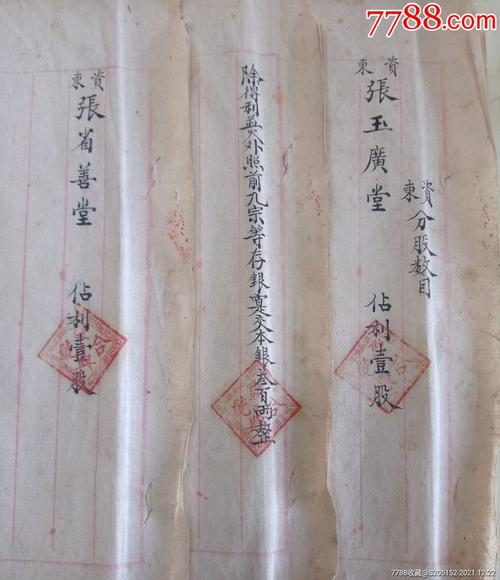 7788.com
資東分股数目
資東 張玉廣堂 佔利壹股
除得利外照前九宗等存銀寔交本銀叁百両整
資東 張省善堂 佔利壹股
7788收藏@S205152-2021.12.22